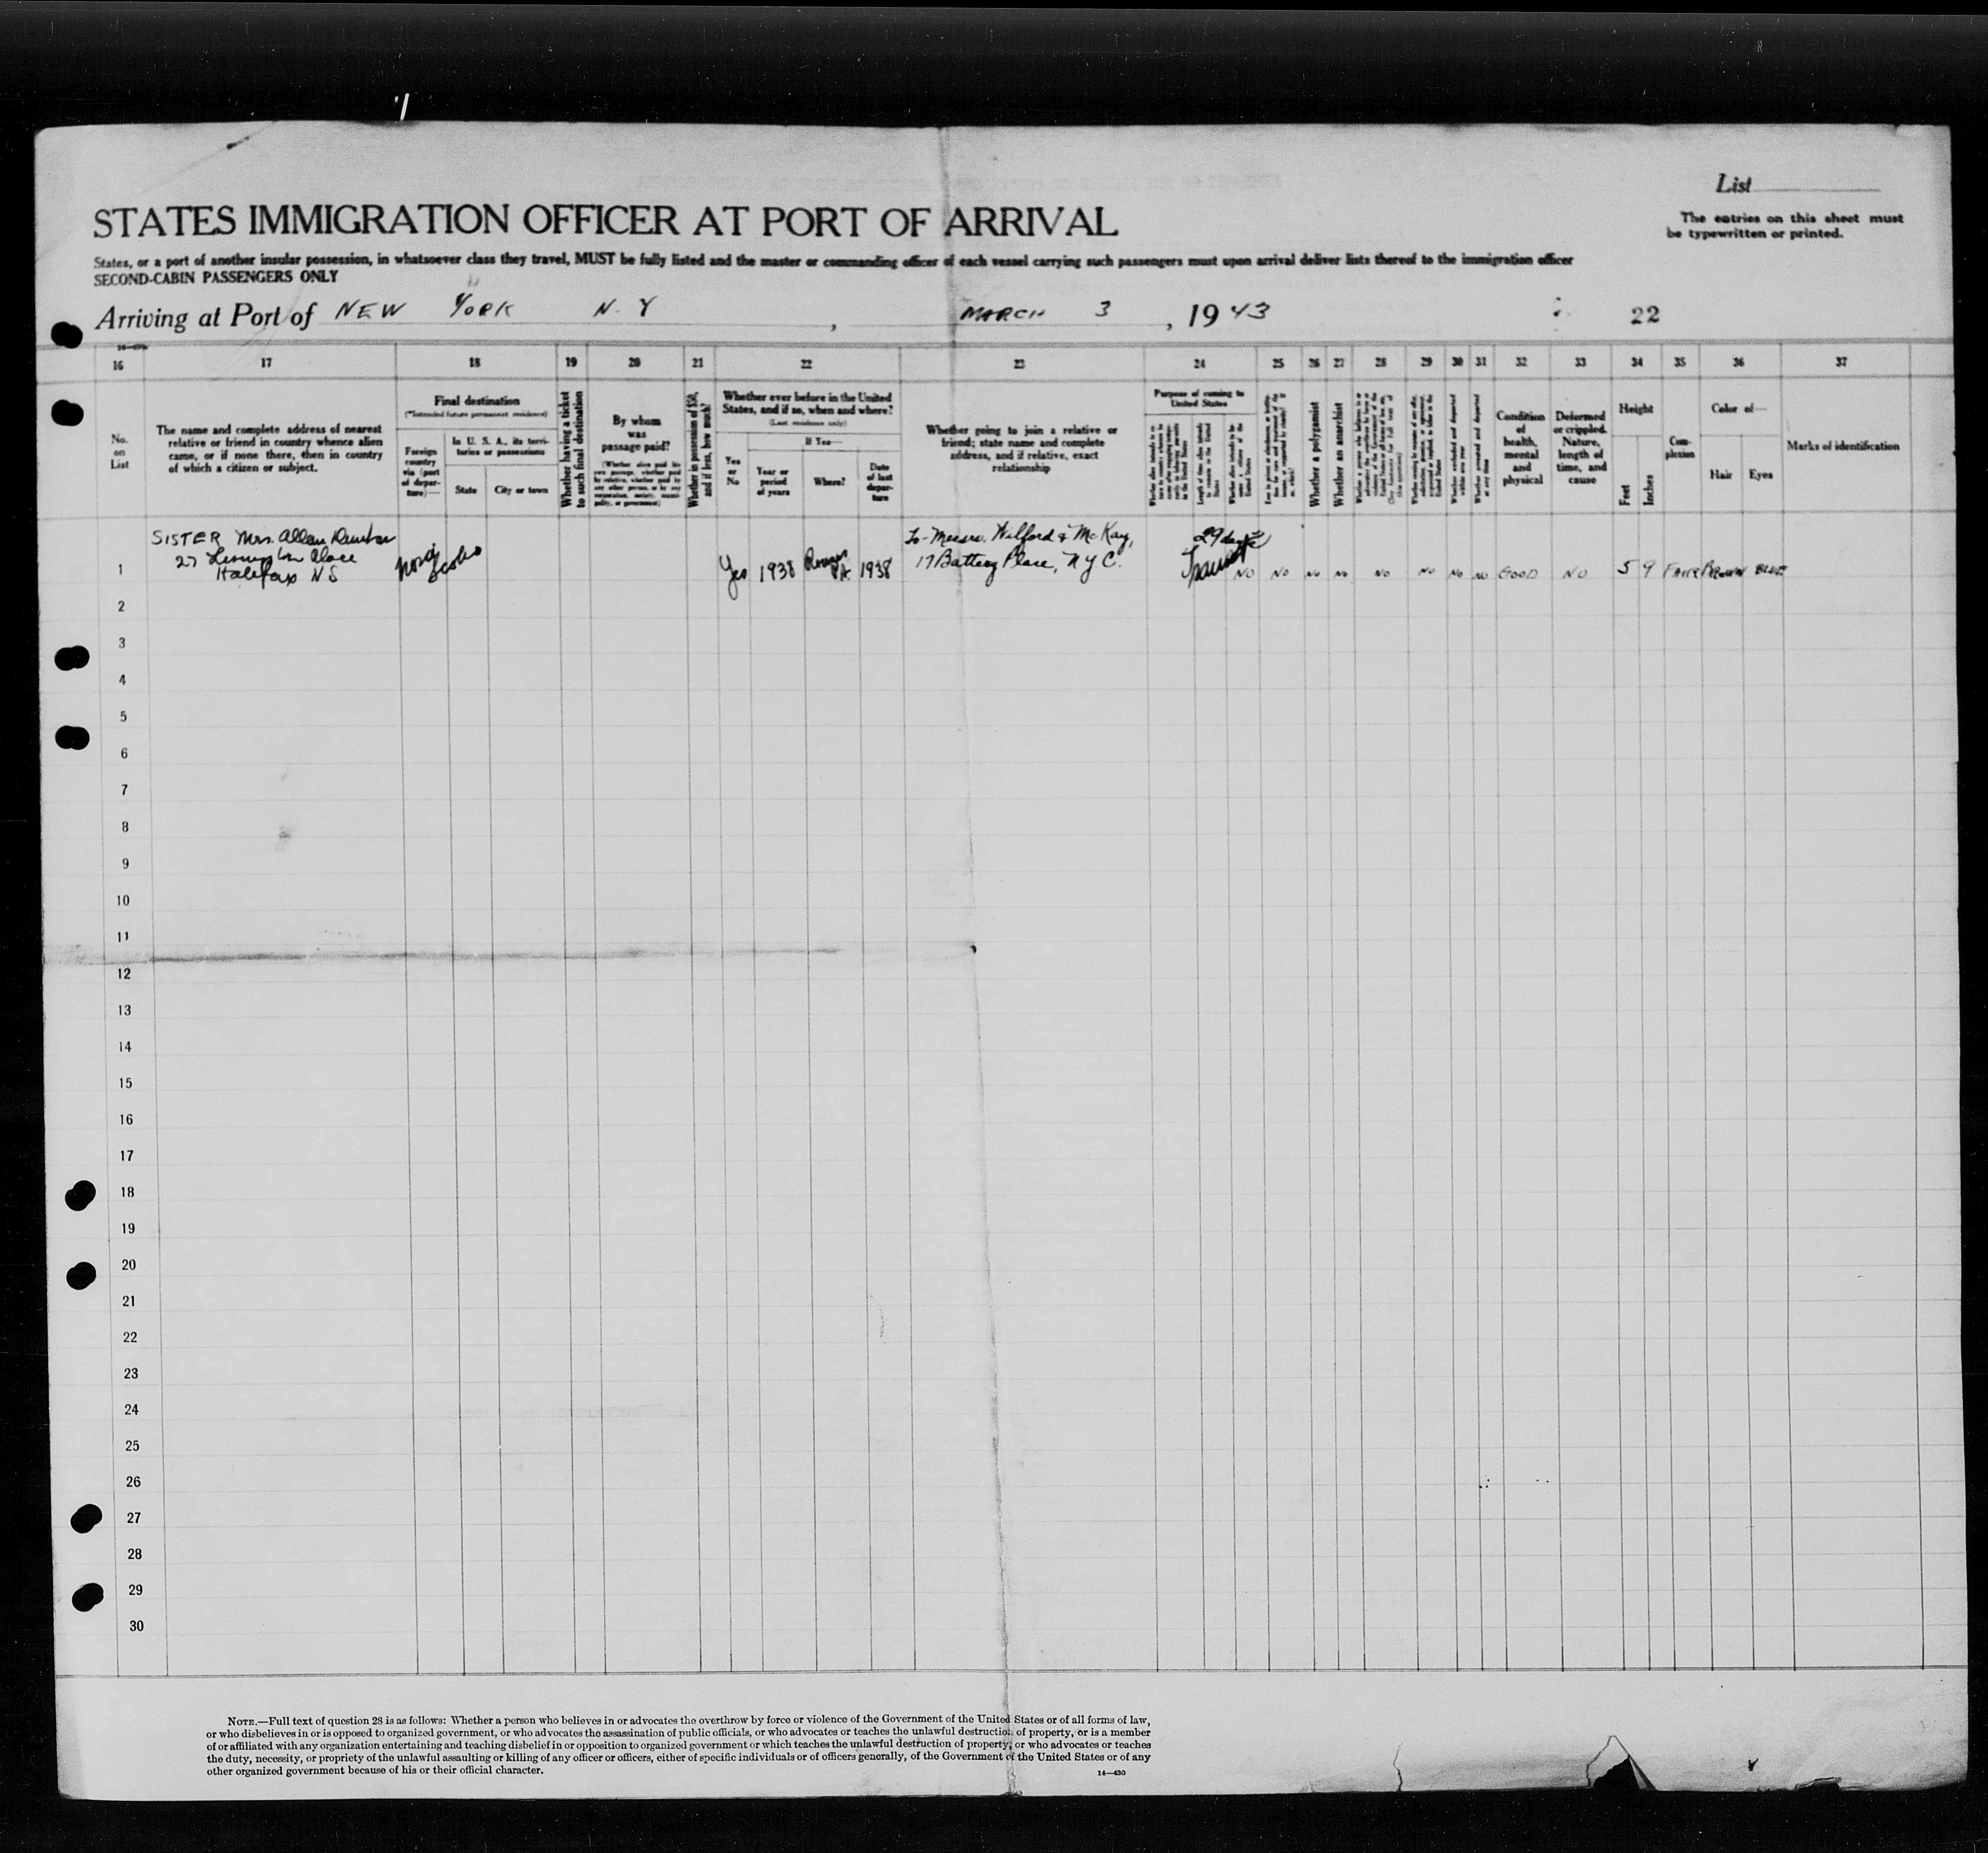 List
STATES IMMIGRATION OFFICER AT PORT OF ARRIVAL
The entries on this sheet must
be typewritten or printed.
States, or a port of another insular possession, in whatsoever class they travel, MUST be fully listed and the master or commanding officer of each vessel carrying such passengers must upon arrival deliver lists thereof to the immigration officer
SECOND-CABIN PASSENGERS ONLY
Arriving at Port of NEW YORK N. Y , MARCH 3 , 19 43 22
16 17 18 19 20 21 22 23 24 25 26 27 28 29 30 31 32 33 34 35 36 37
No.
on
List
The name and complete address of nearest
relative or friend in country whence alien
came, or if none there, then in country
of which a citizen or subject.
Final destination
(*Intended future permanent residence)
Foreign
country
via (port
of depar-
ture)—
In U. S. A., its terri-
tories or possessions
State
City or town
Whether having a ticket
to such final destination
By whom
was
passage paid?
Whether in possession of $50,
and if less, how much?
Whether ever before in the United
States, and if so, when and where?
(Last residence only)
Yes
or
No
If Yes—
Year or
period
of years
Where?
Date
of last
depar-
ture
Whether going to join a relative or
friend; state name and complete
address, and if relative, exact
relationship
Purpose of coming to
United States
Whether a polygamist
Whether an anarchist
Whether excluded and deported
within one year
Whether arrested and deported
at any time
Condition
of
health,
mental
and
physical
Deformed
or crippled.
Nature,
length of
time, and
cause
Height
Feet
Inches
Com-
plexion
Color of—
Hair
Eyes
Marks of identification
SISTER Mrs. Allan
27 Place
Halifax NS
Nova
Scotia
Yes 1938 PA. 1938
To- Messrs. Wilford & McKay,
17 Battery Place, N Y C.
29 days
Transit
NO NO NO NO NO NO NO NO GOOD NO 5 9 FAIR BROWN BLUE
1
2
3
4
5
6
7
8
9
10
11
12
13
14
15
16
17
18
19
20
21
22
23
24
25
26
27
28
29
30
NOTE.—Full text of question 28 is as follows: Whether a person who believes in or advocates the overthrow by force or violence of the Government of the United States or of all forms of law,
or who disbelieves in or is opposed to organized government, or who advocates the assassination of public officials, or who advocates or teaches the unlawful destruction of property, or is a member
of or affiliated with any organization entertaining and teaching disbelief in or opposition to organized government or which teaches the unlawful destruction of property, or who advocates or teaches
the duty, necessity, or propriety of the unlawful assaulting or killing of any officer or officers, either of specific individuals or of officers generally, of the Government of the United States or of any
other organized government because of his or their official character.
14—430